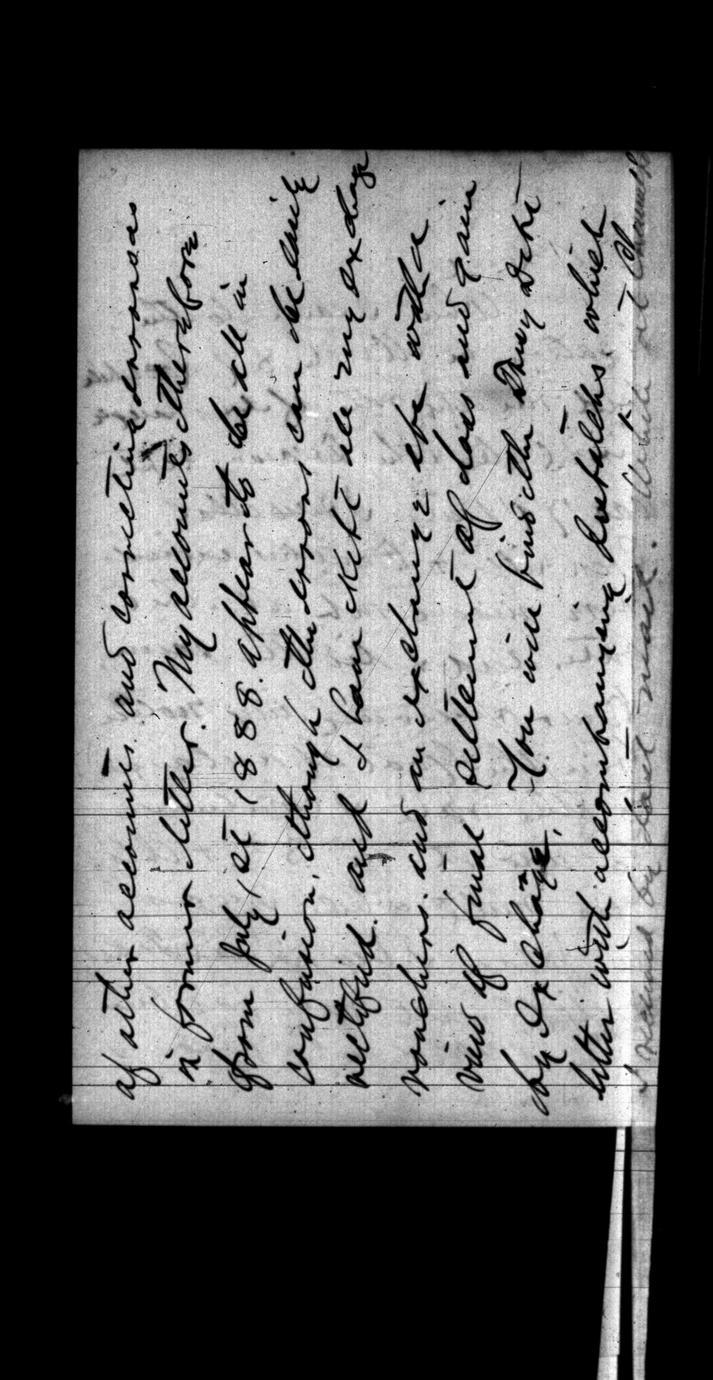 of other accounts. and correcting errors as
in former letter. My accounts therefore
from July 1st 1888. appear to be all in
confusion, though the errors can be easily
rectified. and I have kept all my exchge
vouchers. and an exchange a/c with a
view of final settlement of loss and gain
by Exchange. You will find the Dewy Debt
letter with accompanying despatches, which
I received by last mail.